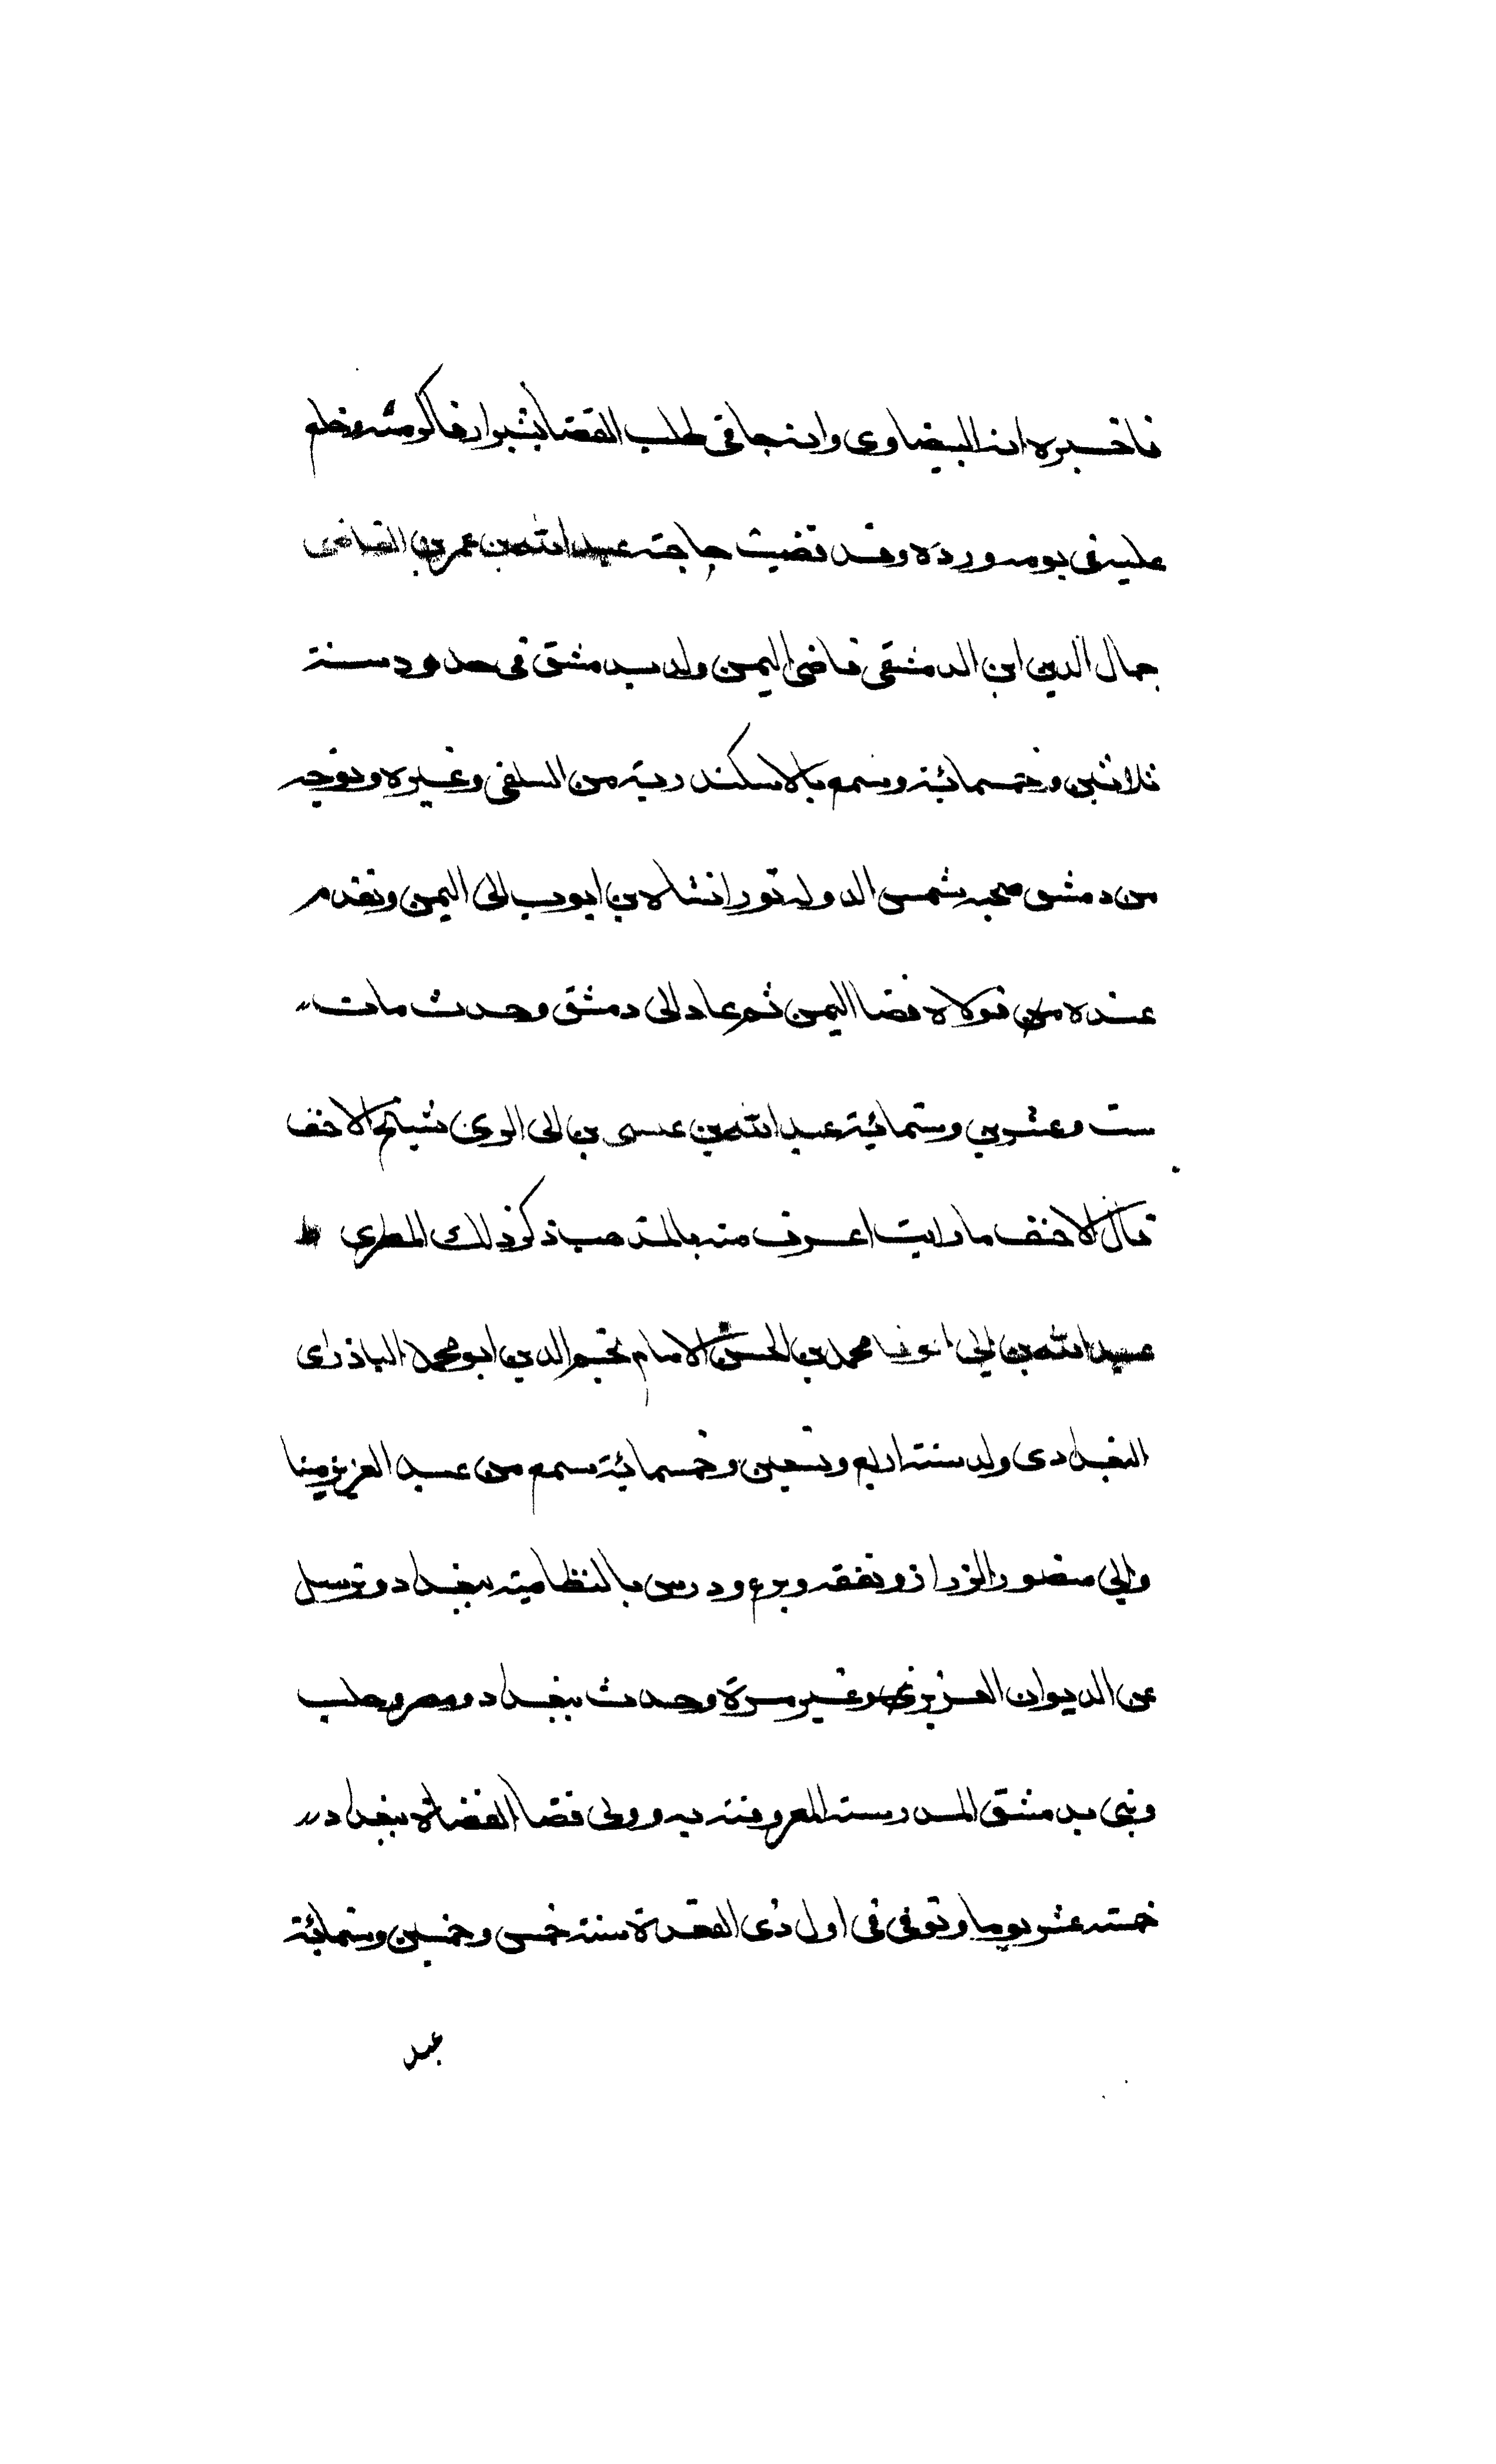 فاخبره انه البيضاوى وانه جا فى طلب القضا بشيراز فاكرمه وخلع
عليه فى يومه ورده وقد قضيت حاجته عبد الله بن عمر بن القاضى
جمال الدين ابن الدمشقى قاضى اليمن ولد بدمشق فى حدود سنة
ثلاثين وخمسمائة وسمع بالاسكندرية من السلفى وغيره وتوجه
من دمشق صحبه شمس الدوله تورانشاه بن ايوب الى اليمن وتقدم
عنده فولاه قضا اليمن ثم عاد الى دمشق وحدث مات
ست وعشرين وستمائة عبد الله بن عيسى بن ابى الورى شيخ الاخف
قال الاخنف ما رايت اعرف منه بالمذهب ذكر ذلك المطرى
عبد الله بن ابى الوفا محمد بن الحسن الامام نجم الدين ابو محمد الباذراى
البغدادى ولد سنة اربع وتسعين وخمسمائة سمع من عبد العزيز مينا
وابى منصور الرزاز وتفقه وبرع ودرس بالنظامية ببغداد وترسل
عن الديوان العزيز غير مرة وحدث ببغداد ومصر وحلب
وبنى بدمشق المدرسة المعروفة به وولى قضا القضاة ببغداد
خمسة عشر يوما وتوفى فى اول ذى القعدة سنة خمس وخمسين وستمائة
عبد